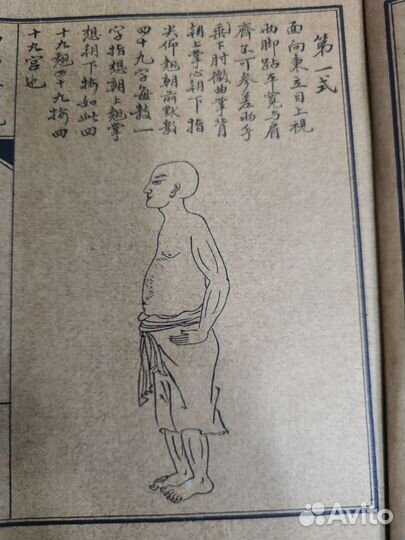 第一式
面向東立目上視
两脚跕平寬与肩
齊不可參差两手
垂下肘微曲掌背
朝上掌心朝下指
尖仰翘朝前默数
四十九字每数一
字指想朝上翘掌
想朝下按如此四
十九翘四十九按四
十九宫也
Avito